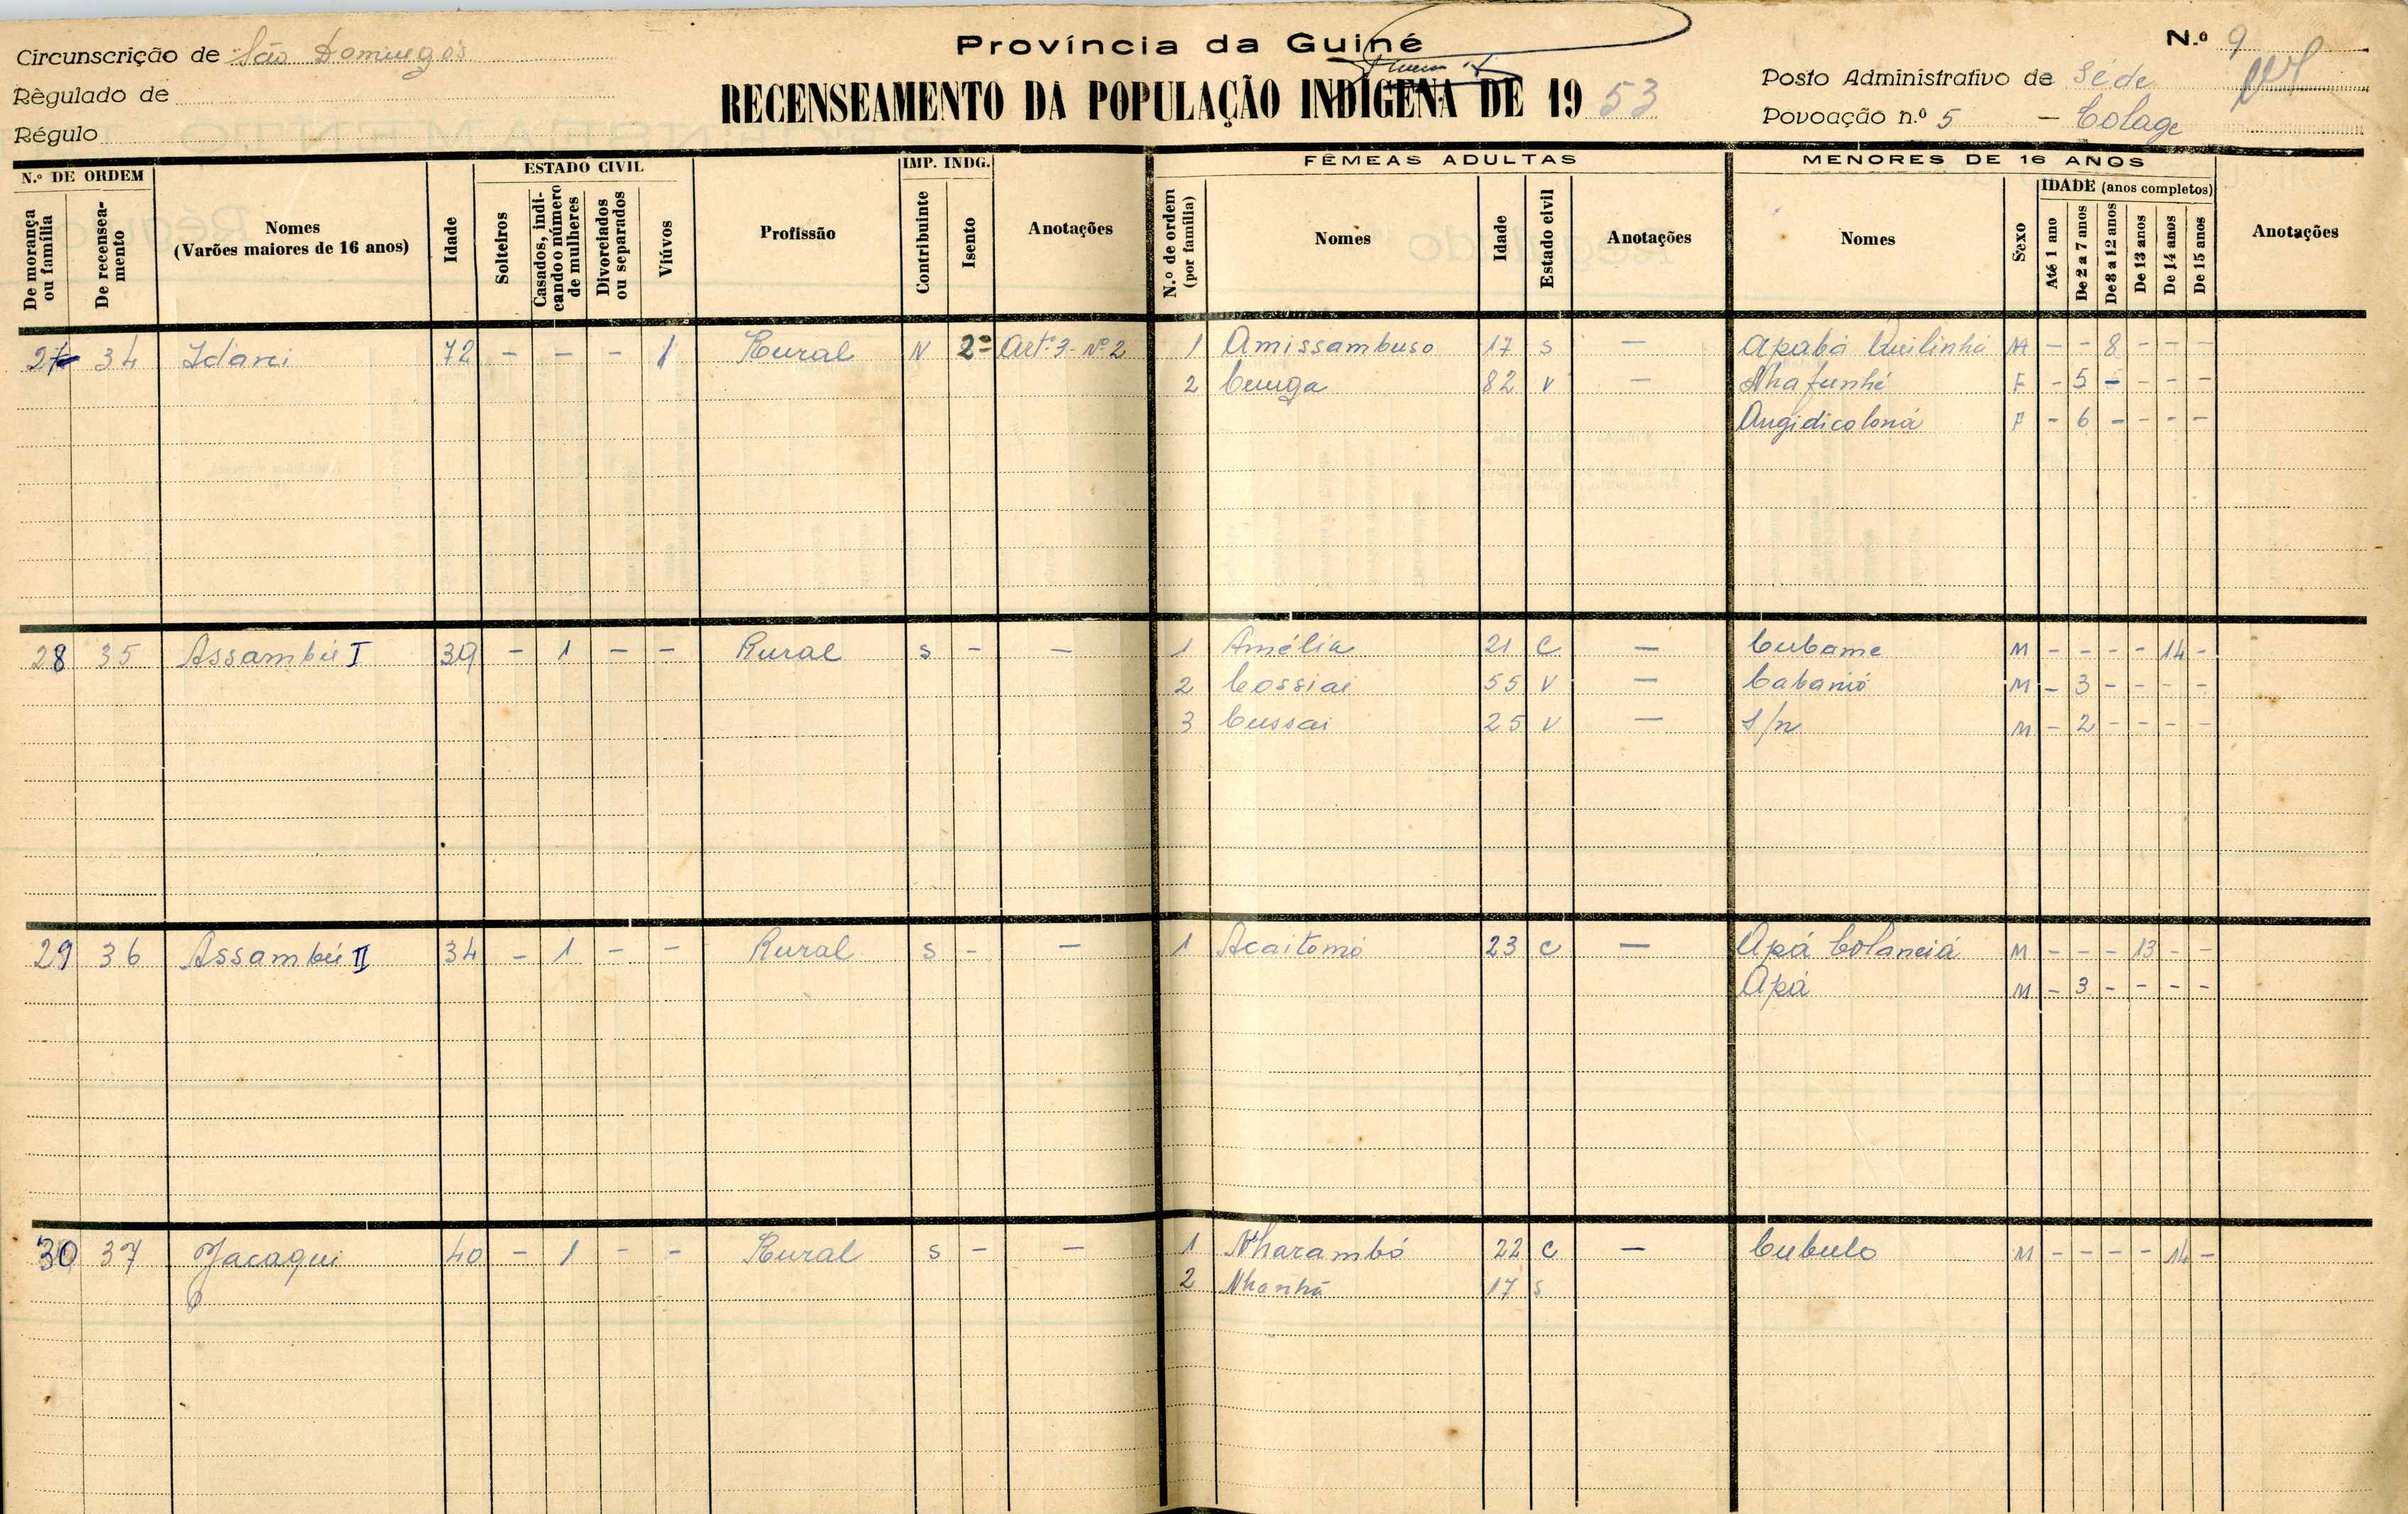 Província da Guiné
Circunscrição de São Domingos
Règulado de
Régulo
RECENSEAMENTO DA POPULAÇÃO INDÍGENA DE 1953
N.º 9
Posto Administrativo de Séde
Povoação n.º 5 — Colage
N.º DE ORDEM
De morança ou família
De recenseamento
Nomes
(Varões maiores de 16 anos)
Idade
ESTADO CIVIL
Solteiros
Casados, indicando o número de mulheres
Divorciados ou separados
Viúvos
Profissão
IMP. INDG.
Contribuinte
Isento
Anotações
FÊMEAS ADULTAS
N.º de ordem (por família)
Nomes
Idade
Estado civil
Anotações
MENORES DE 16 ANOS
Nomes
Sexo
IDADE (anos completos)
Até 1 ano
De 2 a 7 anos
De 8 a 12 anos
De 13 anos
De 14 anos
De 15 anos
Anotações
27 34 Idani 72 - - - 1 Rural N 2º Artº 3- Nº 2 1 Amissambuso 17 S — Apabá Quilinhá M - - 8 - - -
2 Cunga 82 V — Nhafunhé F - 5 - - - -
Angidicoloná F - 6 - - - -
28 35 Assambú I 39 - 1 - - Rural S - — 1 Amélia 21 C — Cubame M - - - - 14 -
2 Cossiai 55 V — Cabanió M - 3 - - - -
3 Cussai 25 V — S/n M - 2 - - - -
29 36 Assambú II 34 - 1 - - Rural S - — 1 Acaitomó 23 C — Apá Colanciá M - - - 13 - -
Apá M - 3 - - - -
30 37 Jacaqui 40 - 1 - - Rural S - — 1 Nharambó 22 C — Cubulo M - - - - 14 -
2 Nhanhá 17 S